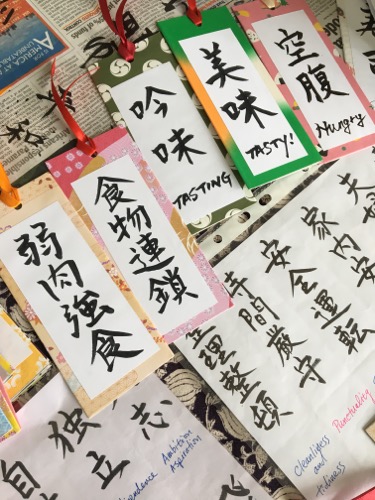 空腹
Hungry
美味
TASTY!
吟味
TASTING
食物連鎖
弱肉強食
家内安
安全運転
時間厳守
整理整頓
Punctuality
Cleanliness
and
Tidiness
志
Ambition
Aspiration
独立
自
AMERICA AT A